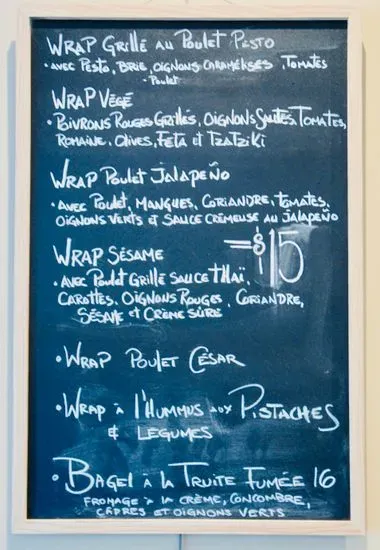 WRAP GRILLÉ AU POULET PESTO
• AVEC PESTO, BRIE, OIGNONS CARAMÉLISÉS, TOMATES
- POULET
WRAP VÉGÉ
• POIVRONS ROUGES GRILLÉS, OIGNONS SAUTÉS, TOMATES,
ROMAINE, OLIVES, FETA ET TZATZIKI
WRAP POULET JALAPEÑO
• AVEC POULET, MANGUES, CORIANDRE, TOMATES,
OIGNONS VERTS ET SAUCE CRÉMEUSE AU JALAPEÑO
WRAP SÉSAME
= $15
• AVEC POULET GRILLÉ SAUCE THAÏ,
CAROTTES, OIGNONS ROUGES, CORIANDRE,
SÉSAME ET CRÈME SÛRE
• WRAP POULET CÉSAR
• WRAP À L'HUMMUS AUX PISTACHES
& LÉGUMES
• BAGEL À LA TRUITE FUMÉE 16
FROMAGE À LA CRÈME, CONCOMBRE,
CÂPRES ET OIGNONS VERTS